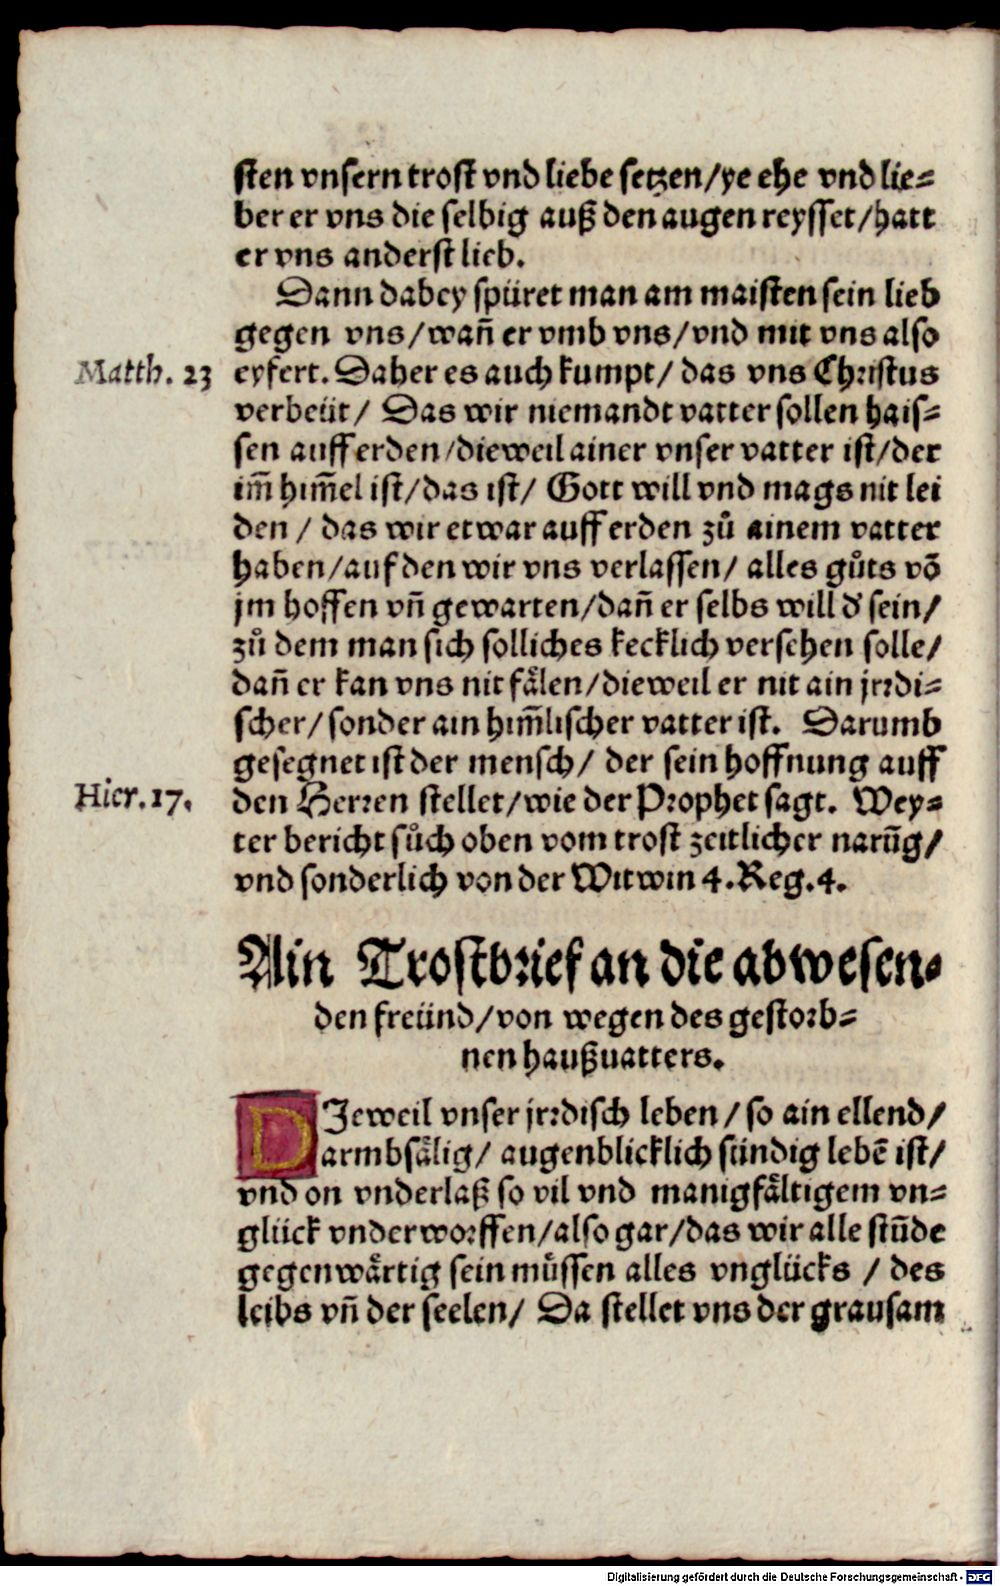 sten vnsern trost vnd liebe setzen/ye ehe vnd lie-
ber er vns die selbig auß den augen reysset/hatt
er vns anderst lieb.
Dann dabey spüret man am maisten sein lieb
gegen vns/wañ er vmb vns/vnd mit vns also
Matth. 23 eyfert. Daher es auch kumpt/ das vns Christus
verbeüt/ Das wir niemandt vatter sollen hais-
sen auff erden/dieweil ainer vnser vatter ist/der
im̃ him̃el ist/das ist/ Gott will vnd mags nit lei
den / das wir etwar auff erden zů ainem vatter
haben/auf den wir vns verlassen/ alles gůts võ
jm hoffen vñ gewarten/dañ er selbs will d' sein/
zů dem man sich solliches kecklich versehen solle/
dañ er kan vns nit fälen/dieweil er nit ain jrrdi-
scher/sonder ain him̃lischer vatter ist. Darumb
gesegnet ist der mensch/ der sein hoffnung auff
Hier. 17. den Herren stellet/wie der Prophet sagt. Wey-
ter bericht sůch oben vom trost zeitlicher narũg/
vnd sonderlich von der Witwin 4.Reg.4.
Ain Trostbrief an die abwesen-
den freünd/von wegen des gestorb-
nen haußuatters.
DJeweil vnser jrrdisch leben/ so ain ellend/
armbsälig/ augenblicklich sündig lebẽ ist/
vnd on vnderlaß so vil vnd manigfältigem vn-
glück vnderworffen/also gar/das wir alle stũde
gegenwärtig sein müssen alles vnglücks / des
leibs vñ der seelen/ Da stellet vns der grausam
Digitalisierung gefördert durch die Deutsche Forschungsgemeinschaft - DFG